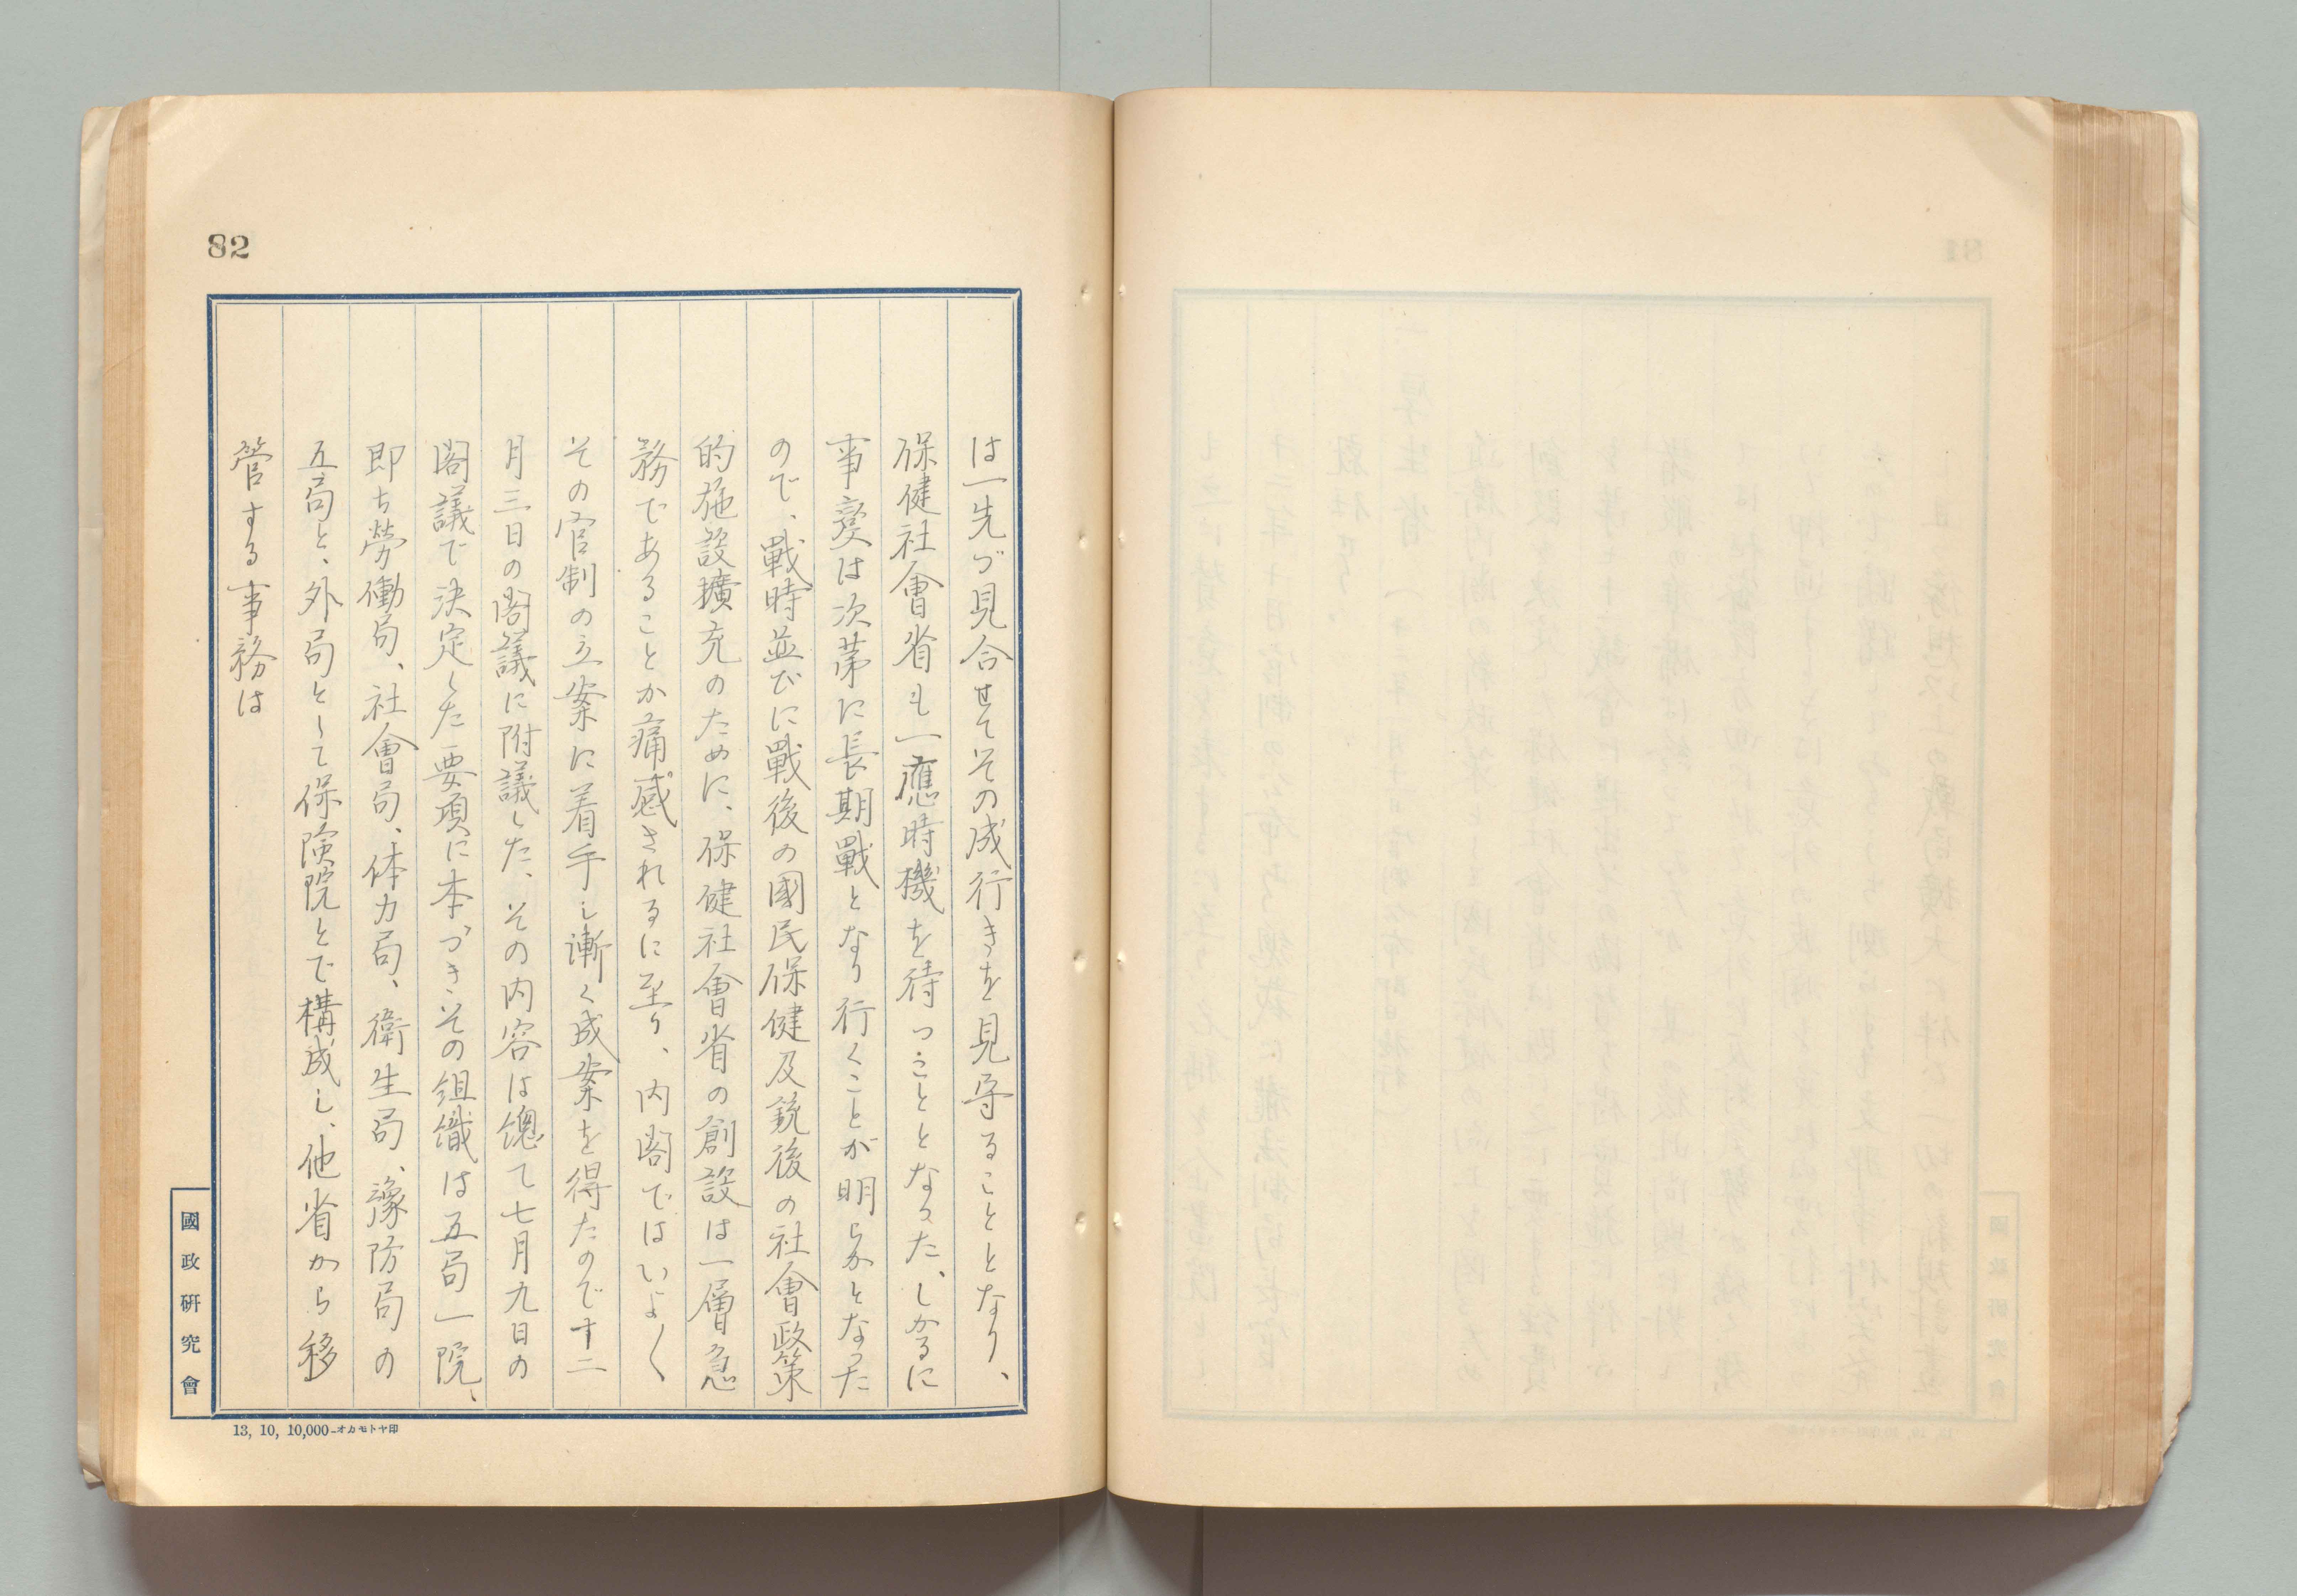 82
は一先づ見合せてその成行きを見守ることとなり、
保健社會省も一應時機を待つこととなった、しかるに
事変は次第に長期戰となり行くことが明らかとなった
ので、戰時並びに戰後の國民保健及銃後の社會政策
的施設擴充のために、保健社會省の創設は一層急
務であることか痛感されるに至り、内閣ではいよ〱
その官制の立案に着手し漸く成案を得たのです二
月三日の閣議に附議した、その内容は總て七月九日の
閣議で決定した要項に本づきその組織は五局一院、
即ち勞働局、社會局、体力局、衛生局、豫防局の
五局と、外局として保険院とで構成し、他省から移
管する事務は
國政研究會
13, 10, 10,000-オカモトヤ印